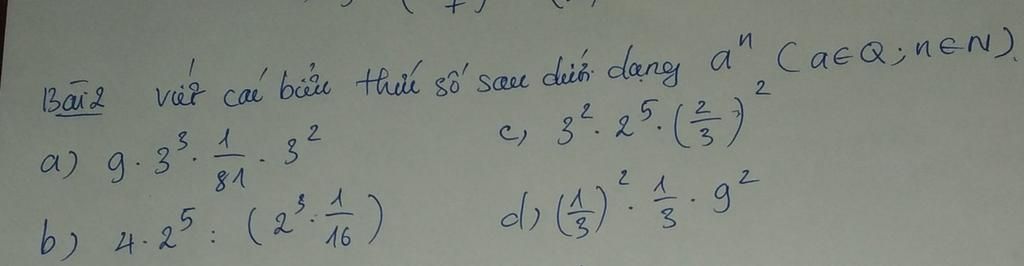 Bài 2 viết các biểu thức số sau dưới dạng aⁿ (a∈Q; n∈N).
a) 9 · 3³ · 1/81 · 3²
c, 3² · 2⁵ · (2/3)²
b) 4 · 2⁵ : (2³ · 1/16)
d, (1/3)² · 1/3 · 9²